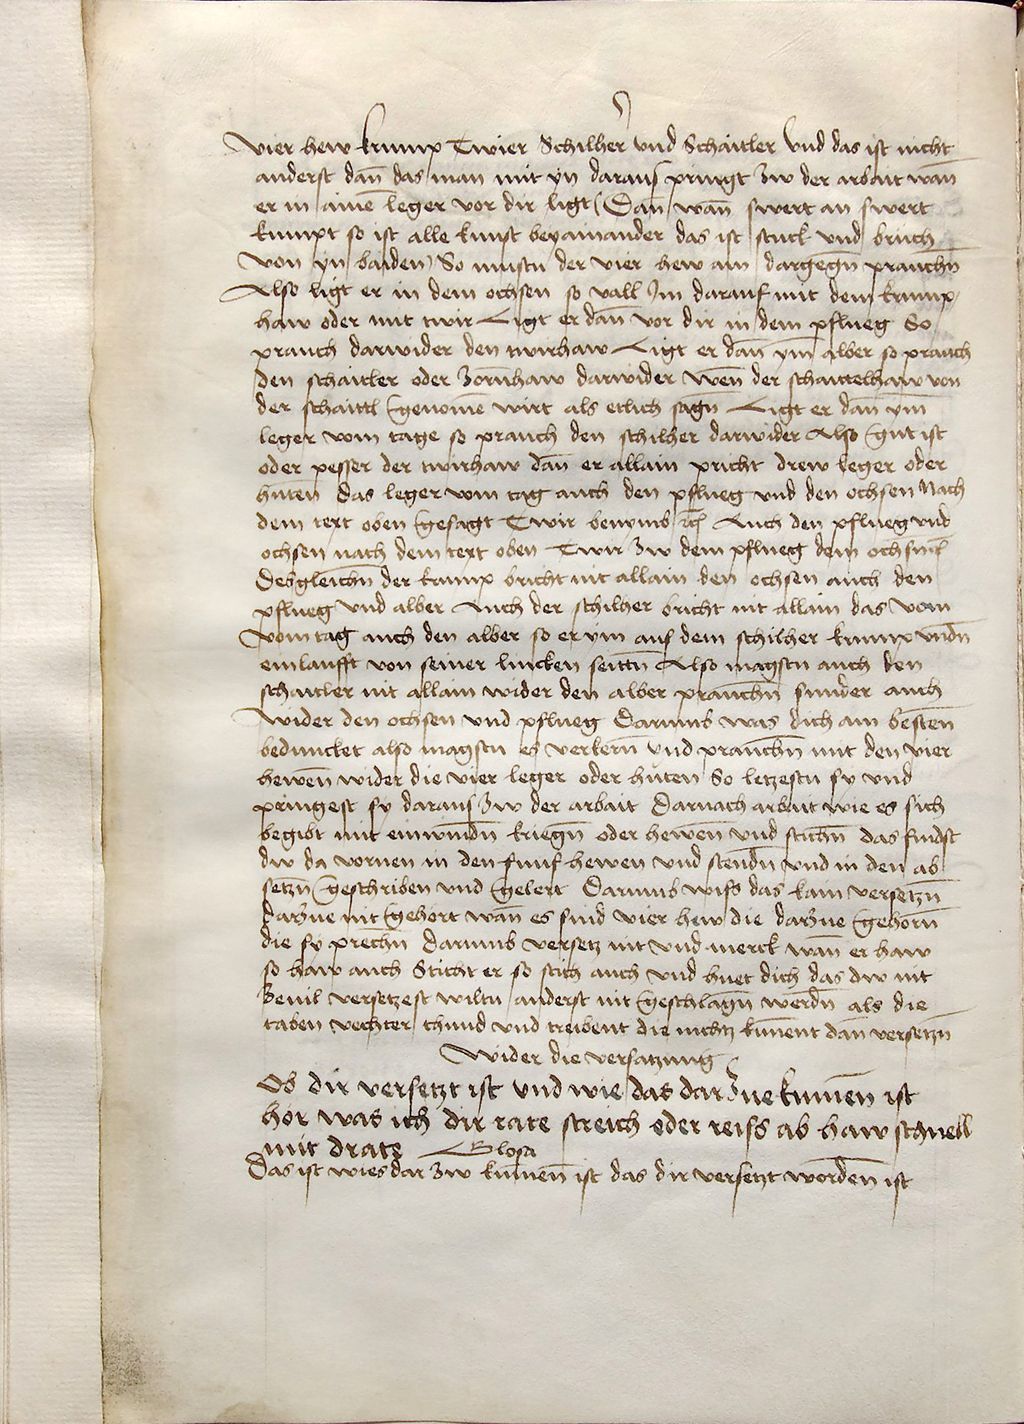 vier hew krump Twier Schilher und Schaitler Und das ist nicht
anderst dañ das man mit yn daraus pringt zw der arbait wañ
er in ainē leger vor dir ligt (Dañ wañ swert an swert
kumpt so ist alle kunst beyainander das ist stuck und bruch
von yn baiden) So mustu der vier hew ain dargegn̄ prauchn̄
Also ligt er in dem ochsen so vall Im darauf mit dem krump
haw oder mit twir Ligt er dañ vor dir in dem pflueg So
prauch darwider den twirhaw Ligt er dañ ym̄ alber so prauch
den schaitler oder zorn̄haw darwider Wen̄ der schaittelhaw von
der schaittl genomē wirt als etlich sagn̄ Ligt er dañ ym̄
leger vom tage so prauch den schilher darwider Also gut ist
oder pesser der twirhaw dañ er allain pricht drew leger oder
hutten̄ das leger vom tag auch den pflueg und den ochsen Nach
dem text oben gesagt Twir benymbt etc Auch den pflueg und
ochsen nach dem text oben Twir zw dem pflueg dem ochsn̄
Desgleichn̄ der krump bricht nit allain den ochsen auch den
pflueg und alber Auch der schilher bricht nit allain das vom
vom tag auch den alber so er ym auf dem schilher krump undn̄
einlaufft von seiner lincken seittn̄ Also magstu auch den
schaitler nit allain wider den alber prauchn̄ sunder auch
wider den ochsen und pflueg Darumb was dich am bestēn
beduncket also magstu es verkern̄ und prauchn̄ mit den vier
hewen̄ wider die vier leger oder huten So letzestu sy und
pringest sy daraus zw der arbait Darnach arbait wie es sich
begibt mit einwindn̄ kriegn̄ oder hewen̄ und stichn̄ das findst
dw da vornen in den funf hewen und stendn̄ und in den ab
setzn̄ geschriben und gelert Darumb wiss das kain versetzn̄
darzue nit gehört wañ es sind vier hew die darzue gehorn̄
die sy prechn̄ Darumb versetz nit und merck wañ er haw
so haw auch Sticht er so stich auch und huet dich das dw nit
zevil versetzest wiltu anderst nit geschlagn̄ werdn̄ als die
taben vechter thund und treibent die nichtz kun̄ent dañ versetzn̄
Wider die versatzung
Ob dir versetzt ist und wie das darzue kumen̄ ist
hor was ich dir rate streich oder reiss ab haw schnell
mit drate Glosa
Das ist wies dar zw kumen̄ ist das dir versetzt worden̄ ist